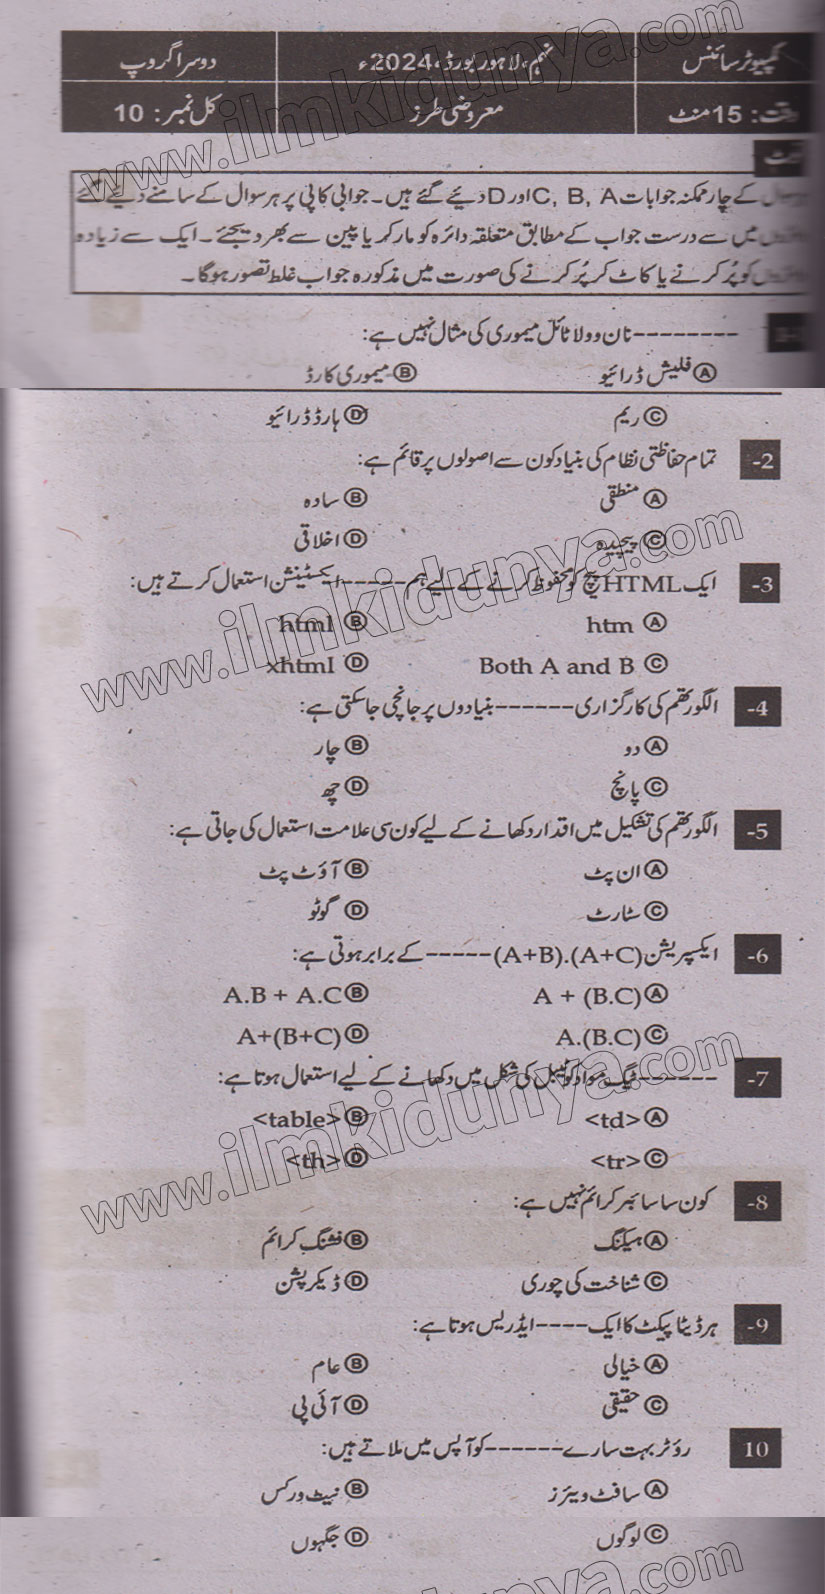 کمپیوٹر سائنس نہم، لاہور بورڈ، 2024ء دوسرا گروپ
وقت: 15 منٹ معروضی طرز کل نمبر: 10
نوٹ
ہر سوال کے چار ممکنہ جوابات C, B, A اور D دیئے گئے ہیں۔ جوابی کاپی پر ہر سوال کے سامنے دیئے گئے
دائروں میں سے درست جواب کے مطابق متعلقہ دائرہ کو مارکر یا پین سے بھر دیجئے۔ ایک سے زیادہ
دائروں کو پُر کرنے یا کاٹ کر پُر کرنے کی صورت میں مذکورہ جواب غلط تصور ہوگا۔
-------- نان وولاٹائل میموری کی مثال نہیں ہے:
Ⓐ فلیش ڈرائیو Ⓑ میموری کارڈ
Ⓒ ریم Ⓓ ہارڈ ڈرائیو
-2 تمام حفاظتی نظام کی بنیاد کون سے اصولوں پر قائم ہے:
Ⓐ منطقی Ⓑ سادہ
Ⓒ پیچیدہ Ⓓ اخلاقی
-3 ایک HTML پیج کو محفوظ کرنے کے لیے ہم ----- ایکسٹینشن استعمال کرتے ہیں:
Ⓐ htm Ⓑ html
Ⓒ Both A and B Ⓓ xhtml
-4 الگورتھم کی کارگزاری ------ بنیادوں پر جانچی جاسکتی ہے:
Ⓐ دو Ⓑ چار
Ⓒ پانچ Ⓓ چھ
-5 الگورتھم کی تشکیل میں اقدار دکھانے کے لیے کون سی علامت استعمال کی جاتی ہے:
Ⓐ ان پٹ Ⓑ آؤٹ پٹ
Ⓒ سٹارٹ Ⓓ گوٹو
-6 ایکسپریشن (A+B).(A+C) ----- کے برابر ہوتی ہے:
Ⓐ A + (B.C) Ⓑ A.B + A.C
Ⓒ A.(B.C) Ⓓ A+(B+C)
-7 ------ ٹیگ مواد کو ٹیبل کی شکل میں دکھانے کے لیے استعمال ہوتا ہے:
Ⓐ <td> Ⓑ <table>
Ⓒ <tr> Ⓓ <th>
-8 کون سا سائبر کرائم نہیں ہے:
Ⓐ ہیکنگ Ⓑ فشنگ کرائم
Ⓒ شناخت کی چوری Ⓓ ڈیکرپشن
-9 ہر ڈیٹا پیکٹ کا ایک ---- ایڈریس ہوتا ہے:
Ⓐ خیالی Ⓑ عام
Ⓒ حقیقی Ⓓ آئی پی
10 روٹر بہت سارے ------ کو آپس میں ملاتے ہیں:
Ⓐ سافٹ ویئرز Ⓑ نیٹ ورکس
Ⓒ لوگوں Ⓓ جگہوں
www.ilmkidunya.com
www.ilmkidunya.com
www.ilmkidunya.com